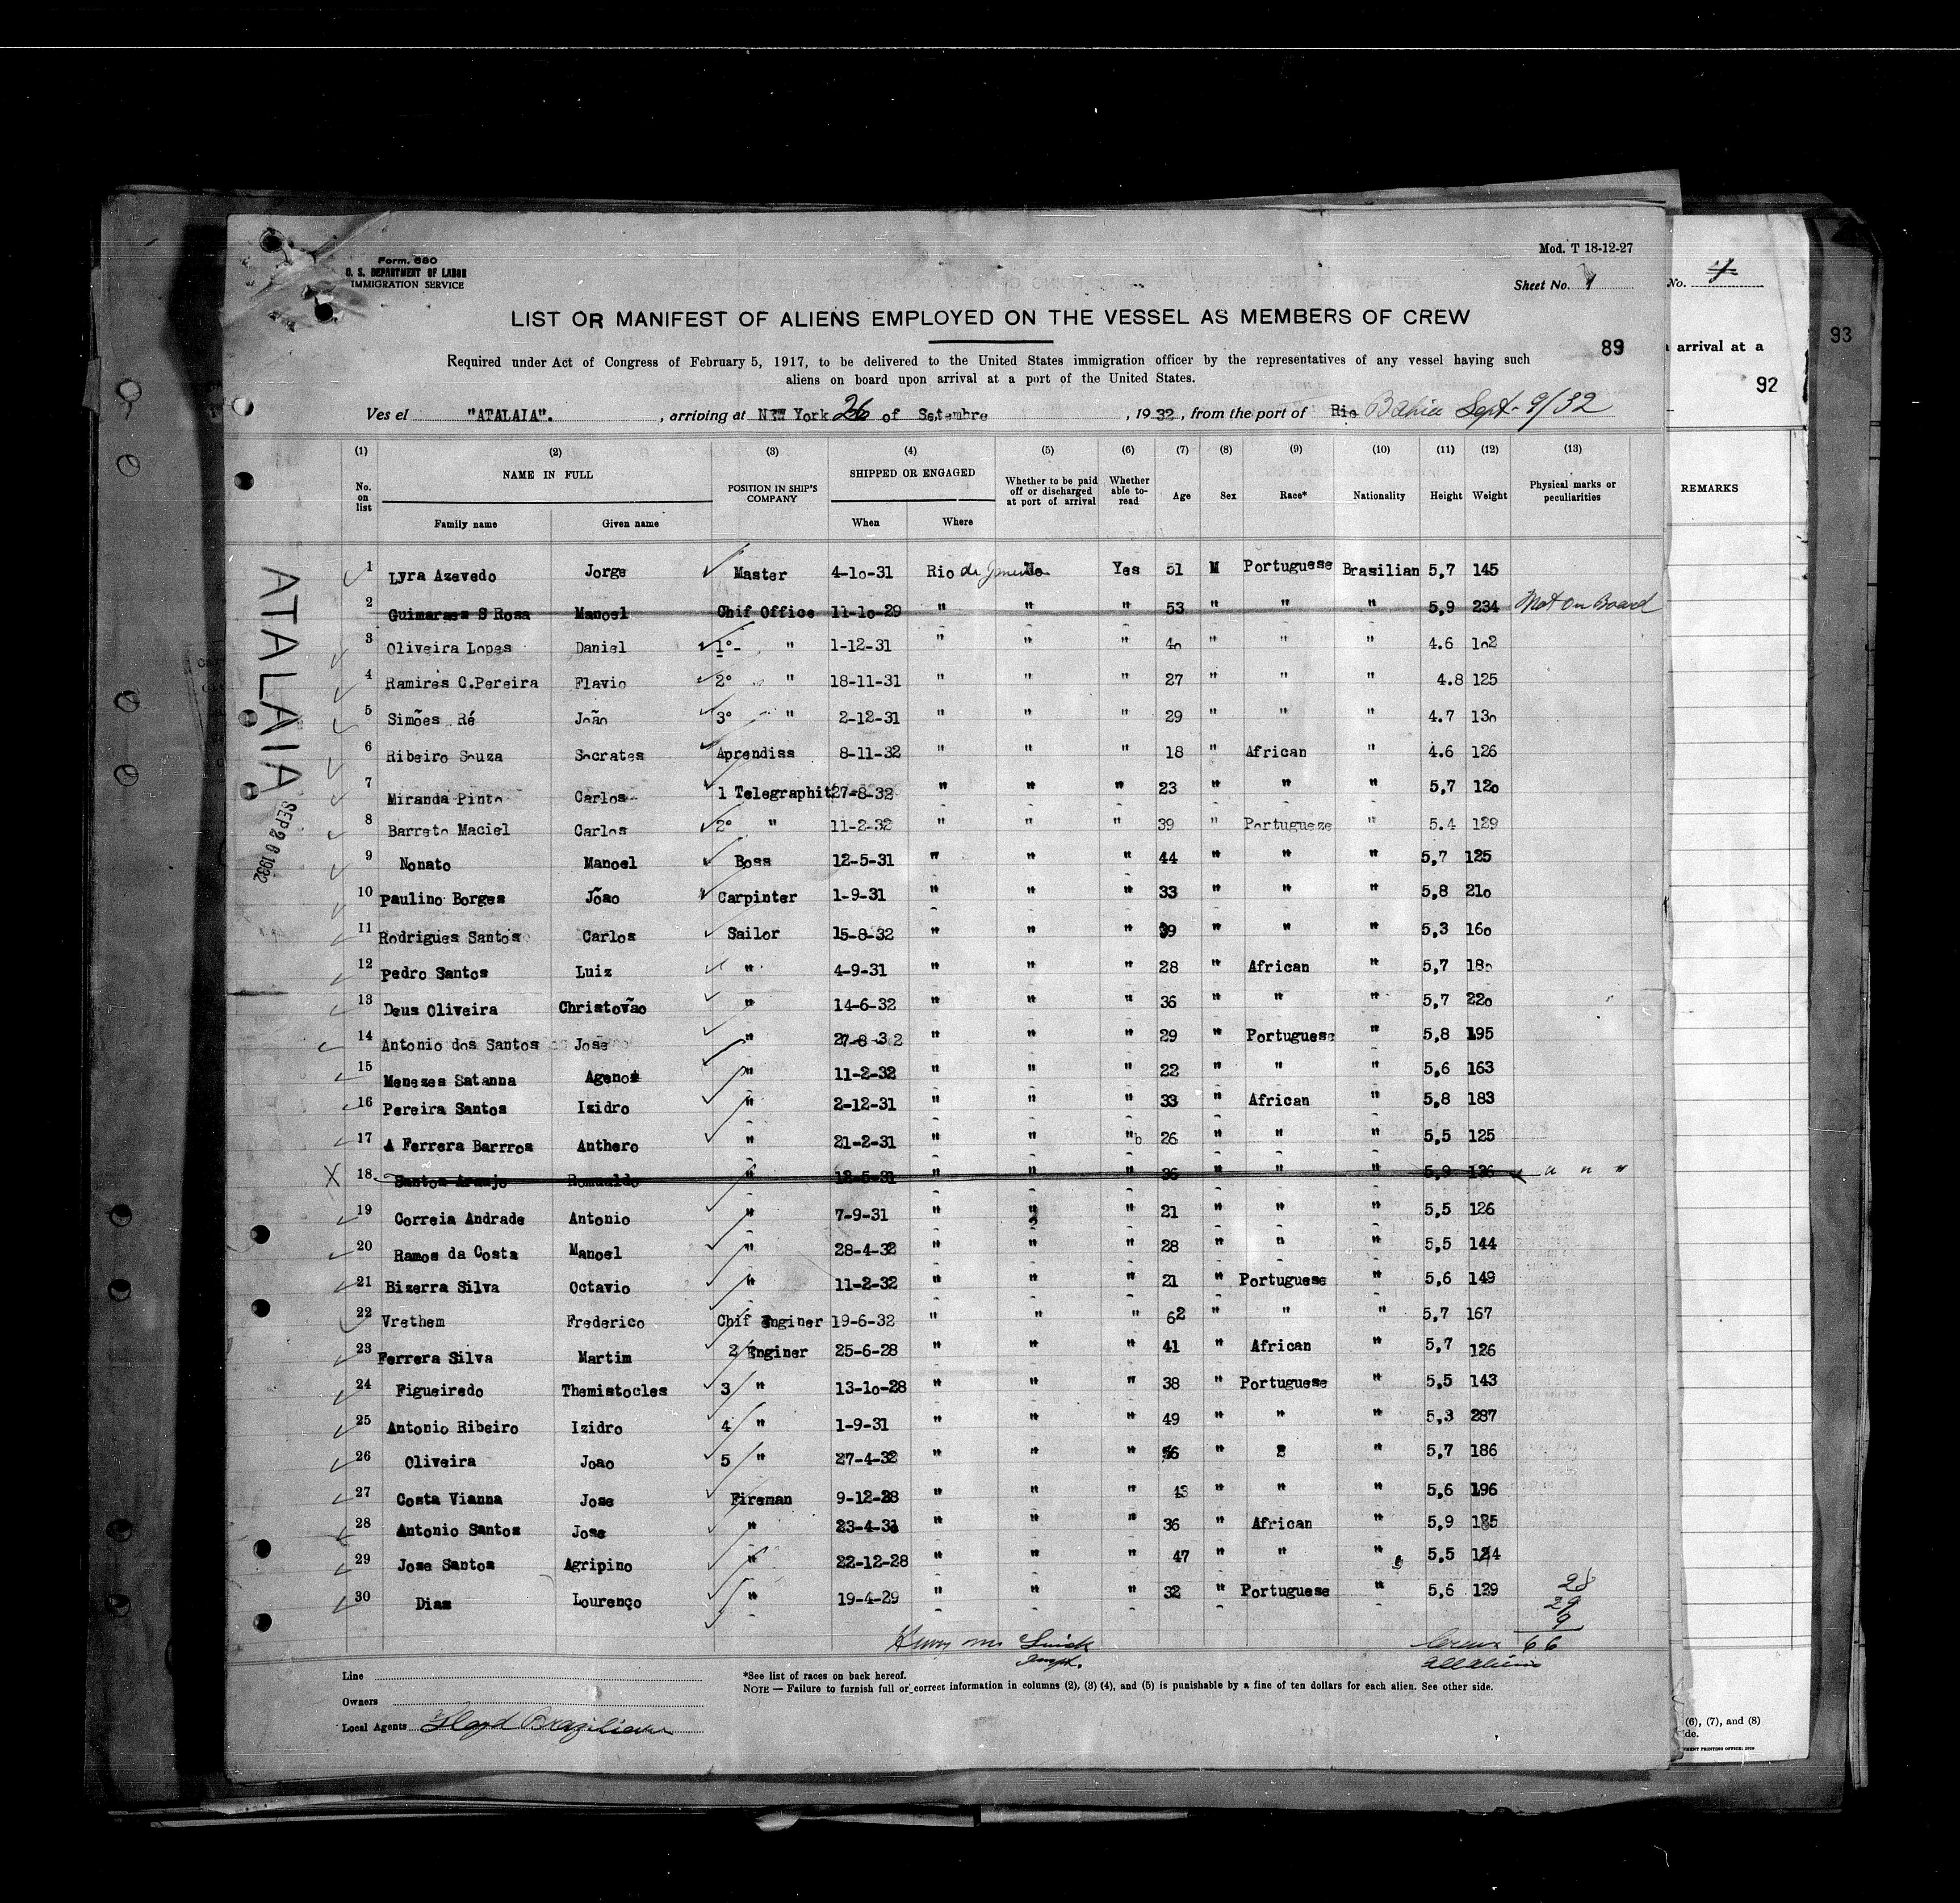 Mod. T 18-12-27
Form. 680
U. S. DEPARTMENT OF LABOR
IMMIGRATION SERVICE
Sheet No. 1
LIST OR MANIFEST OF ALIENS EMPLOYED ON THE VESSEL AS MEMBERS OF CREW
89
Required under Act of Congress of February 5, 1917, to be delivered to the United States immigration officer by the representatives of any vessel having such
aliens on board upon arrival at a port of the United States.
Ves el "ATALAIA". , arriving at NEW York 26 of Setembre , 1932, from the port of Rio Bahia Sept- 9/32
(1) (2) (3) (4) (5) (6) (7) (8) (9) (10) (11) (12) (13)
No. on list NAME IN FULL Family name Given name POSITION IN SHIP'S COMPANY SHIPPED OR ENGAGED When Where Whether to be paid off or discharged at port of arrival Whether able to-read Age Sex Race* Nationality Height Weight Physical marks or peculiarities
1 Lyra Azevedo Jorge Master 4-1o-31 Rio de Janeiro No Yes 51 M Portuguese Brasilian 5,7 145
2 Guimaraes S Rosa Manoel Chif Office 11-1o-29 " " " 53 " " " 5,9 234 Not On Board
3 Oliveira Lopes Daniel 1º- " 1-12-31 " " " 4o " " " 4.6 1o2
4 Ramires C.Pereira Flavio 2º " 18-11-31 " " " 27 " " " 4.8 125
5 Simões Ré João 3º " 2-12-31 " " " 29 " " " 4.7 13o
6 Ribeiro Souza Socrates Aprendiss 8-11-32 " " " 18 " African " 4.6 126
7 Miranda Pinto Carlos 1 Telegraphit 27-8-32 " " " 23 " " " 5,7 12o
8 Barreto Maciel Carlos 2º " 11-2-32 " " " 39 " Portugueze " 5.4 129
9 Nonato Manoel Boss 12-5-31 " " " 44 " " " 5,7 125
10 Paulino Borges Jõao Carpinter 1-9-31 " " " 33 " " " 5,8 21o
11 Rodrigues Santos Carlos Sailor 15-8-32 " " " 39 " " " 5,3 16o
12 Pedro Santos Luiz " 4-9-31 " " " 28 " African " 5,7 18o
13 Deus Oliveira Christovão " 14-6-32 " " " 36 " " " 5,7 22o
14 Antonio dos Santos Jose " 27-8-32 " " " 29 " Portuguese " 5,8 195
15 Menezes Satanna Agenor " 11-2-32 " " " 22 " " " 5,6 163
16 Pereira Santos Izidro " 2-12-31 " " " 33 " African " 5,8 183
17 A Ferrera Barrros Anthero " 21-2-31 " " " 26 " " " 5,5 125
18 Santos Araujo Romualdo " 12-5-31 " " " 36 " " " 5,9 136 " " "
19 Correia Andrade Antonio " 7-9-31 " " " 21 " " " 5,5 126
20 Ramos da Costa Manoel " 28-4-32 " " " 28 " " " 5,5 144
21 Bizerra Silva Octavio " 11-2-32 " " " 21 " Portuguese " 5,6 149
22 Vrethem Frederico Chif Enginer 19-6-32 " " " 62 " " " 5,7 167
23 Ferrera Silva Martim 2 Enginer 25-6-28 " " " 41 " African " 5,7 126
24 Figueiredo Themistocles 3 " 13-1o-28 " " " 38 " Portuguese " 5,5 143
25 Antonio Ribeiro Izidro 4 " 1-9-31 " " " 49 " " " 5,3 287
26 Oliveira Joao 5 " 27-4-32 " " " " 2 " 5,7 186
27 Costa Vianna Jose Fireman 9-12-28 " " " 43 " " " 5,6 196
28 Antonio Santos Jose " 23-4-31 " " " 36 " African " 5,9 185
29 Jose Santos Agripino " 22-12-28 " " " 47 " " " 5,5 124
30 Dias Lourenço " 19-4-29 " " " 32 " Portuguese " 5,6 129
28
29
9
66
ATALAIA
SEP 26 1932
Line
Owners
Local Agents Lloyd Braziliano
*See list of races on back hereof.
NOTE — Failure to furnish full or correct information in columns (2), (3) (4), and (5) is punishable by a fine of ten dollars for each alien. See other side.
No. 4
arrival at a
92
93
REMARKS
(6), (7), and (8)